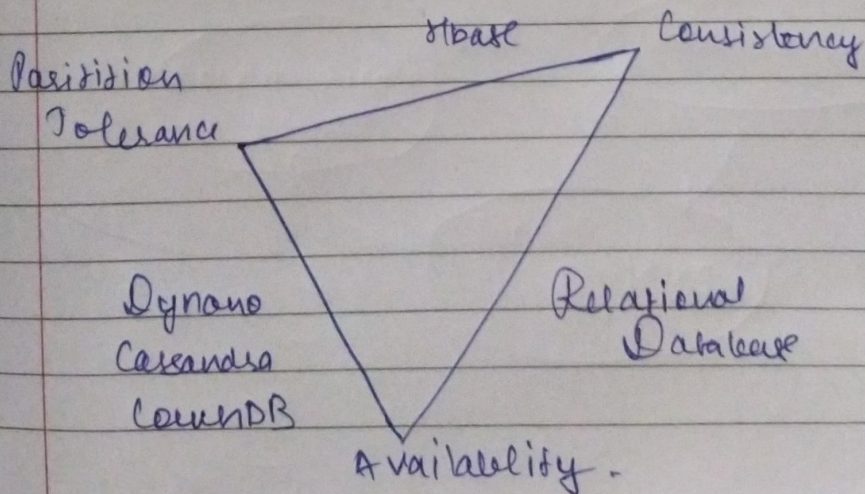 Hbase
Consistency
Partition
Tolerance
Dynamo
Cassandra
CouchDB
Relational
Database
Availability.